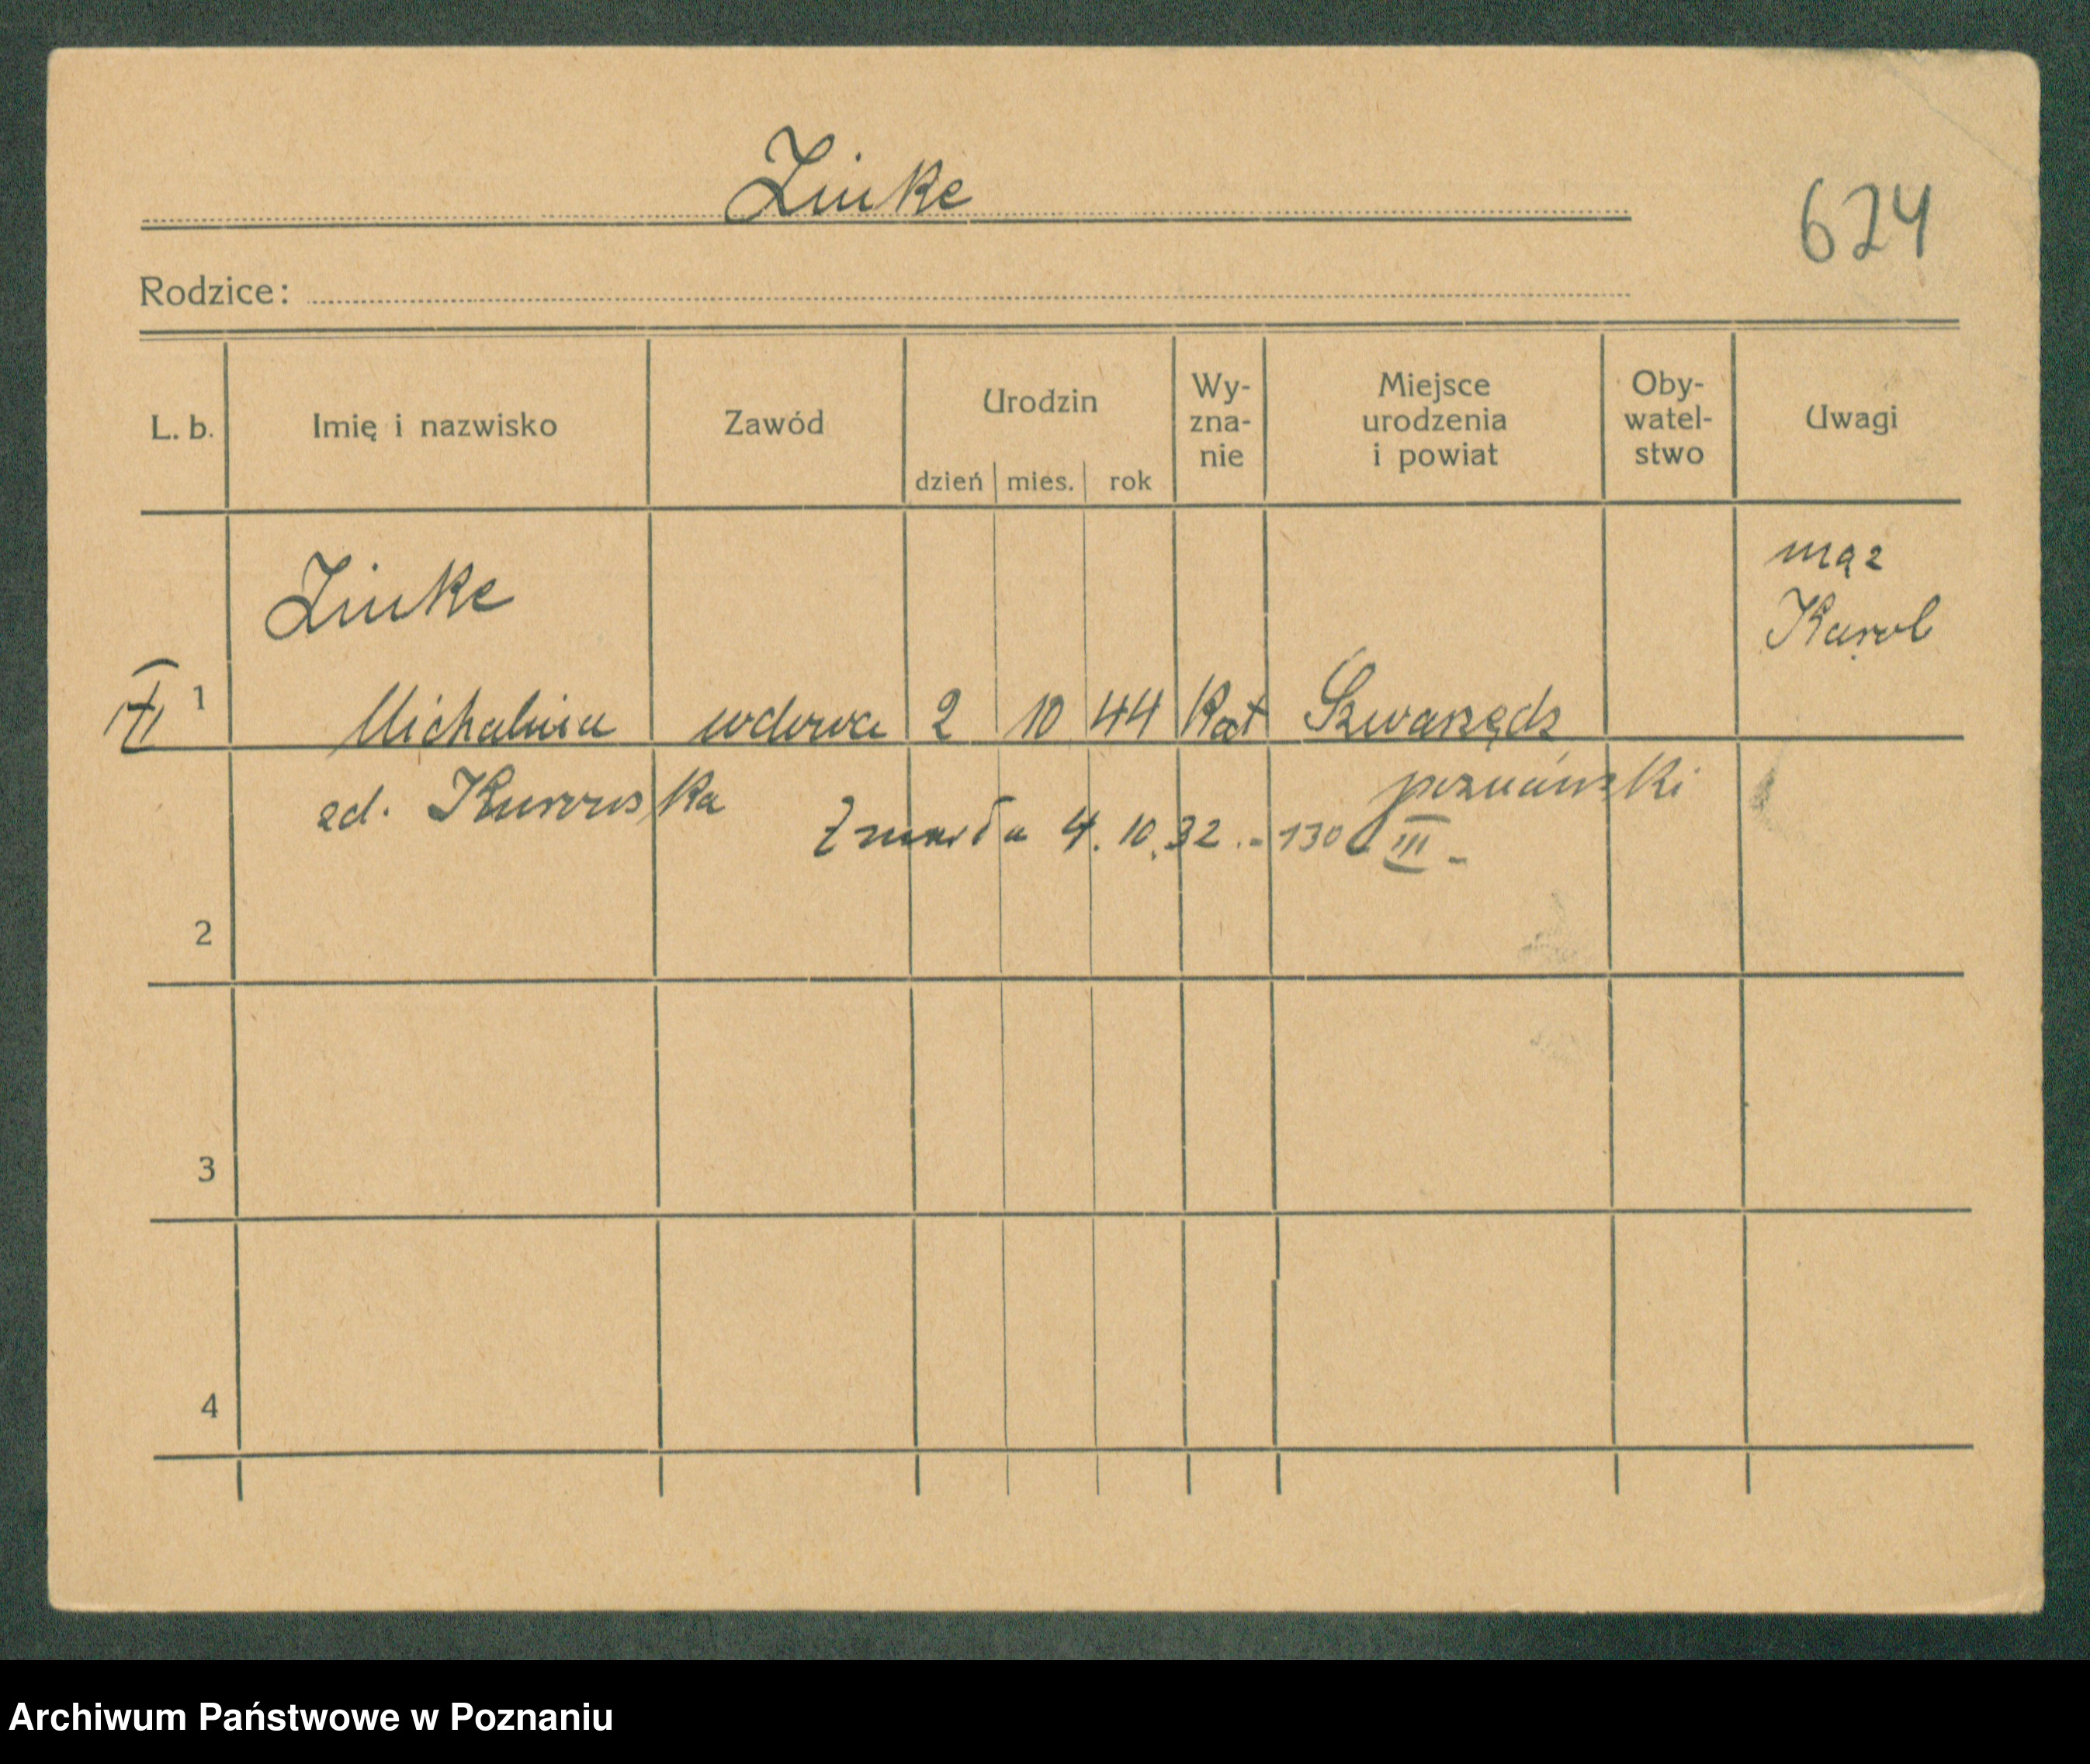 Zinke
624
Rodzice:
L. b.
Imię i nazwisko
Zawód
Urodzin
dzień mies. rok
Wy-
zna-
nie
Miejsce
urodzenia
i powiat
Oby-
watel-
stwo
Uwagi
Zinke
mąż
Karol
1 Michalina wdowa 2 10 44 Kat Swarzędz
zd. poznański
Zmarła 4.10.32.- 130 III -
2
3
4
Archiwum Państwowe w Poznaniu